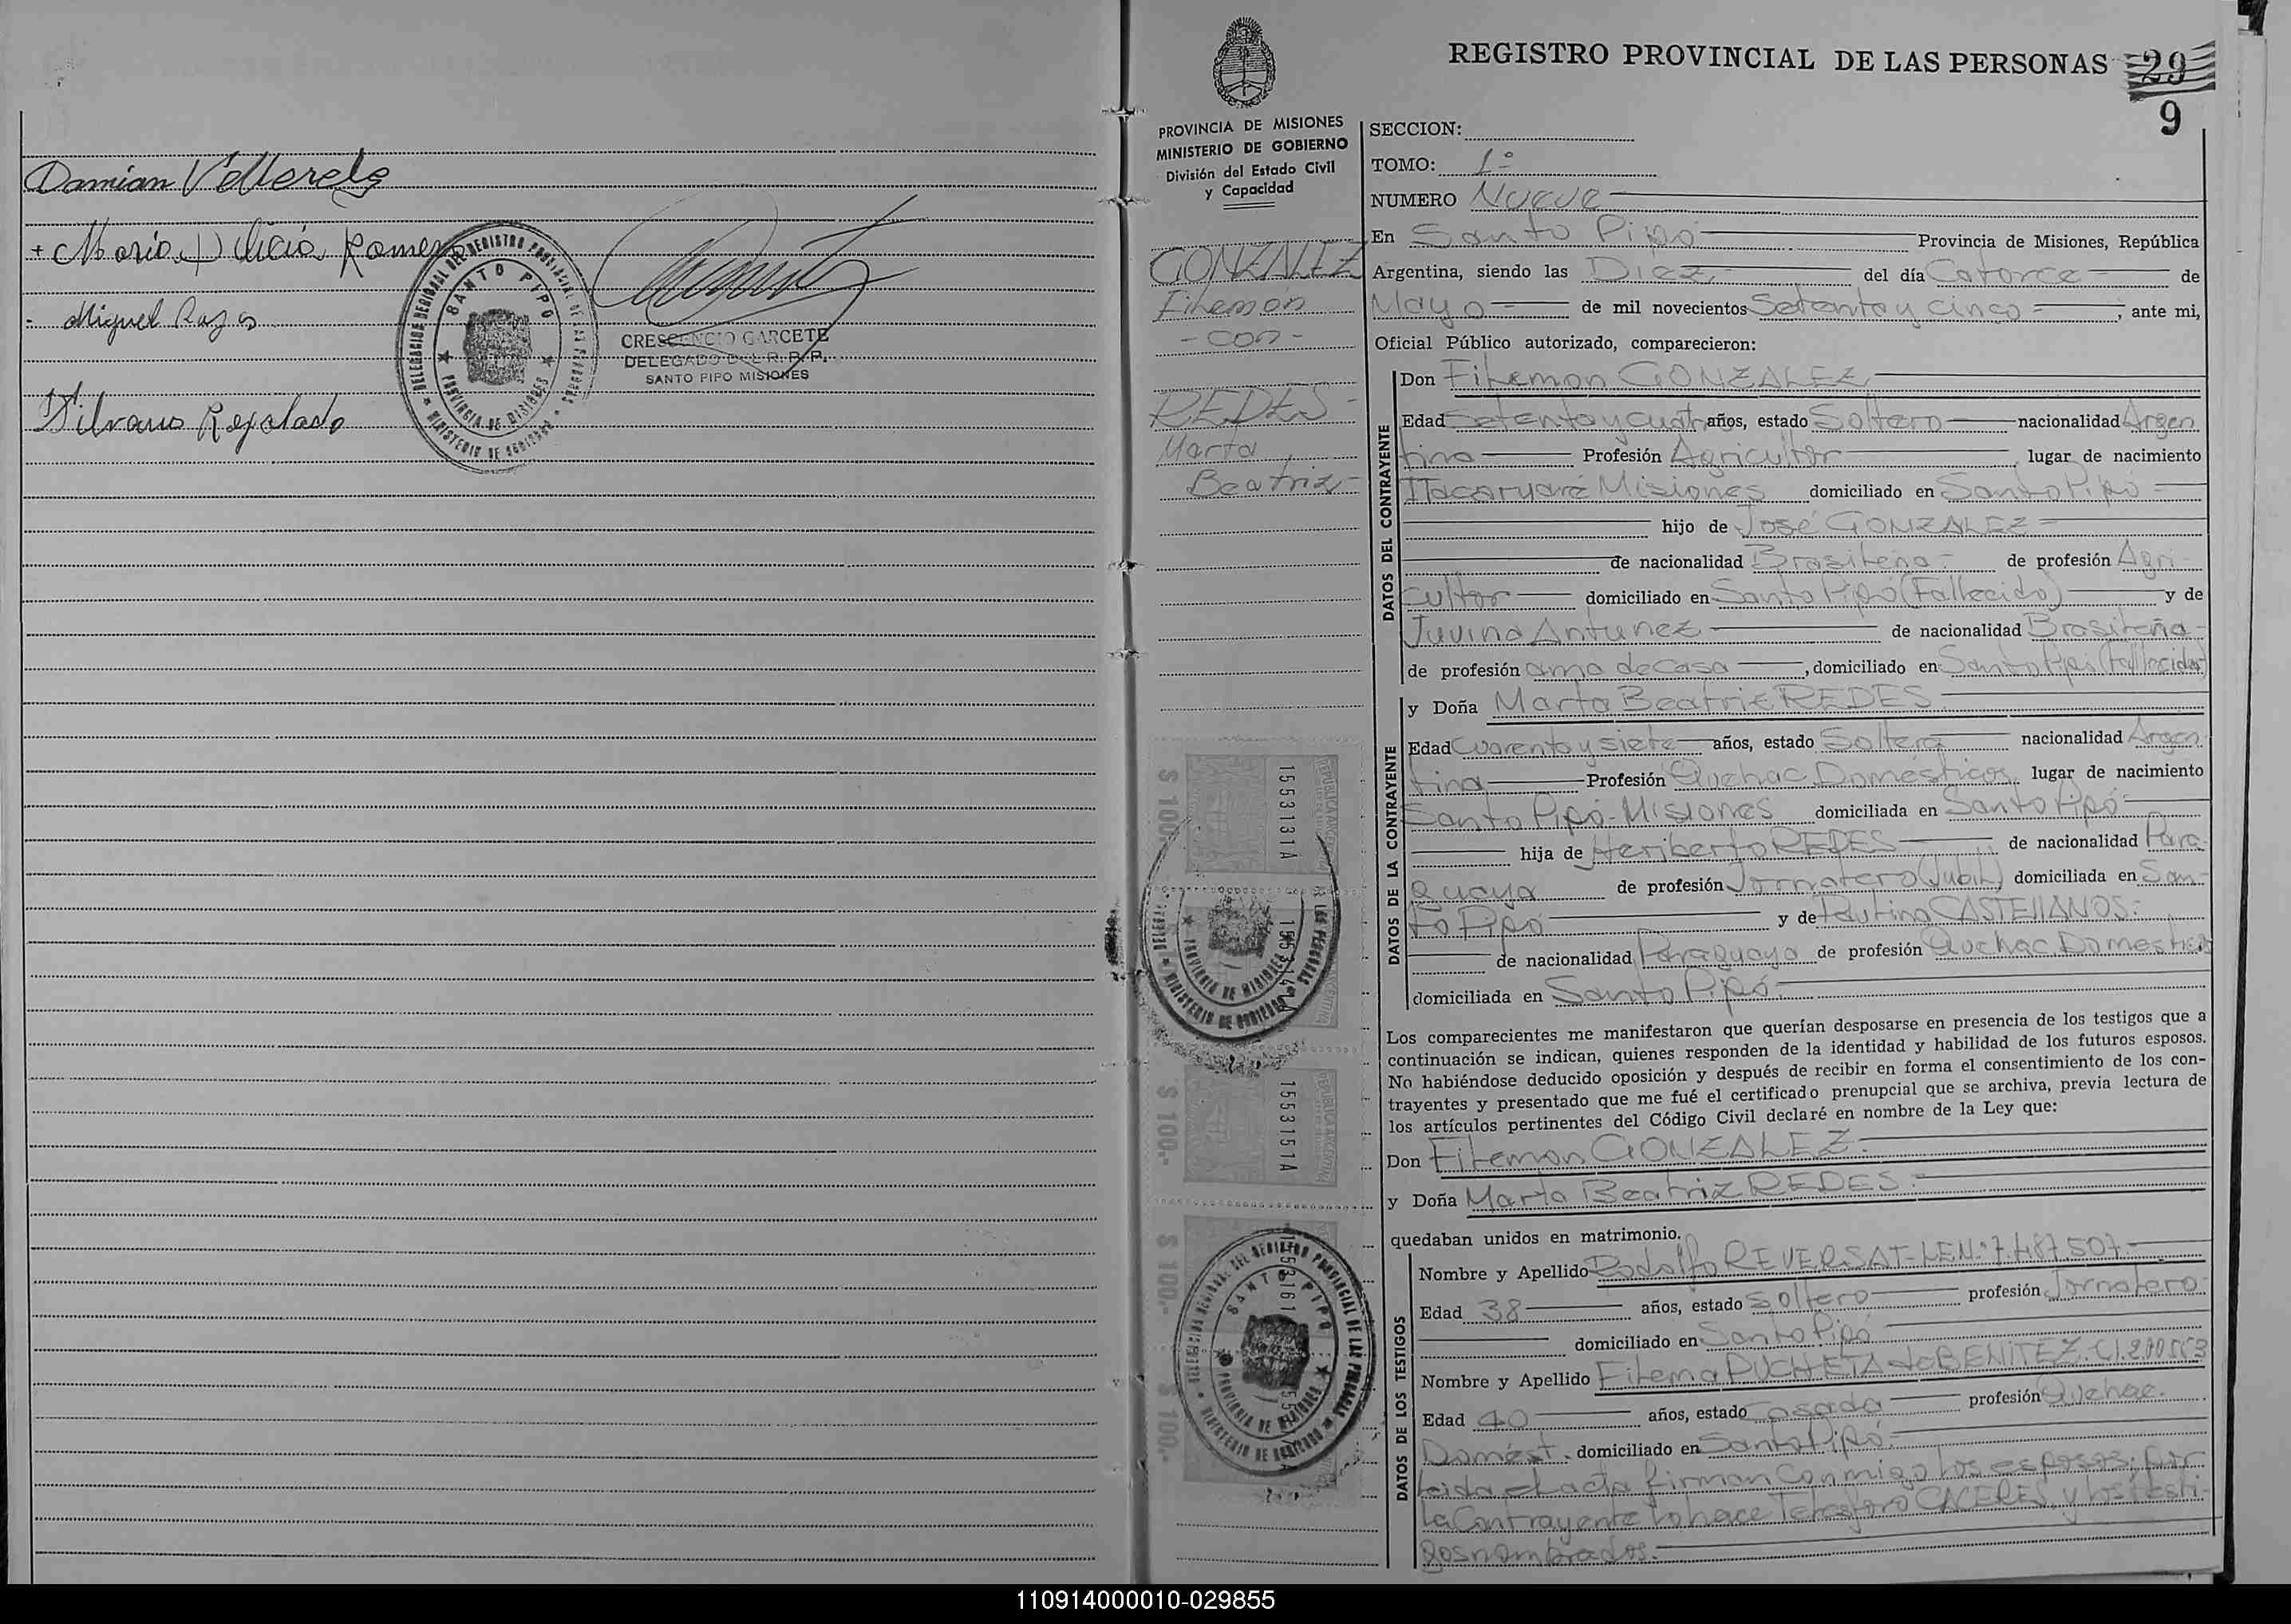 Damian
+ Maria Delicia Romero
- Miguel Rojas
Silvano Regalado
DELEGACION REGIONAL DEL REGISTRO PROVINCIAL DE LAS PERSONAS
SANTO PIPO
PROVINCIA DE MISIONES
MINISTERIO DE GOBIERNO
CRESCENCIO GARCETE
DELEGADO DEL R. P. P.
SANTO PIPO MISIONES
REGISTRO PROVINCIAL DE LAS PERSONAS 29
9
PROVINCIA DE MISIONES
MINISTERIO DE GOBIERNO
División del Estado Civil
y Capacidad
GONZALEZ
Filemón
- con -
REDES -
Marta
Beatriz -
SECCION:
TOMO: 1º
NUMERO Nueve
En Santo Pipó Provincia de Misiones, República
Argentina, siendo las Diez del día Catorce de
Mayo de mil novecientos Setenta y cinco, ante mi,
Oficial Público autorizado, comparecieron:
DATOS DEL CONTRAYENTE
Don Filemon GONZALEZ
Edad Setenta y cuatr años, estado Soltero nacionalidad Argen
tina Profesión Agricultor lugar de nacimiento
Itacaruaré Misiones domiciliado en Santo Pipó
hijo de José GONZALEZ
de nacionalidad Brasileña de profesión Agri
cultor domiciliado en Santo Pipó (Fallecido) y de
Juvina Antunez de nacionalidad Brasileña
de profesión ama de Casa, domiciliado en Santo Pipó (Fallecida)
DATOS DE LA CONTRAYENTE
y Doña Marta Beatriz REDES
Edad Cuarenta y siete años, estado Soltera nacionalidad Argen
tina Profesión Quehac. Domésticos lugar de nacimiento
Santo Pipó-Misiones domiciliada en Santo Pipó
hija de Heriberto REDES de nacionalidad Para
guaya de profesión Jornalero (Jubil) domiciliada en San-
to Pipó y de CASTELLANOS
de nacionalidad Paraguaya de profesión Quehac. Domesticos
domiciliada en Santo Pipó.
Los comparecientes me manifestaron que querían desposarse en presencia de los testigos que a
continuación se indican, quienes responden de la identidad y habilidad de los futuros esposos.
No habiéndose deducido oposición y después de recibir en forma el consentimiento de los con-
trayentes y presentado que me fué el certificado prenupcial que se archiva, previa lectura de
los artículos pertinentes del Código Civil declaré en nombre de la Ley que:
Don Filemon GONZALEZ
y Doña Marta Beatriz REDES
quedaban unidos en matrimonio.
DATOS DE LOS TESTIGOS
Nombre y Apellido Rodolfo REVERSAT-L.E.N.º 7.487.507
Edad 38 años, estado Soltero profesión Jornalero
domiciliado en Santo Pipó
Nombre y Apellido Filema PUCHETA de BENITEZ C.I.
Edad 40 años, estado Casada profesión Quehac.
Domést. domiciliado en Santo Pipó.
Leida el acta firman conmigo los esposos, por
La Contrayente lo hace Telesforo CACERES, y los testi-
gos nombrados.
$ 100.-
1553131A
$ 100.-
1553151A
$ 100.-
$ 100.-
110914000010-029855